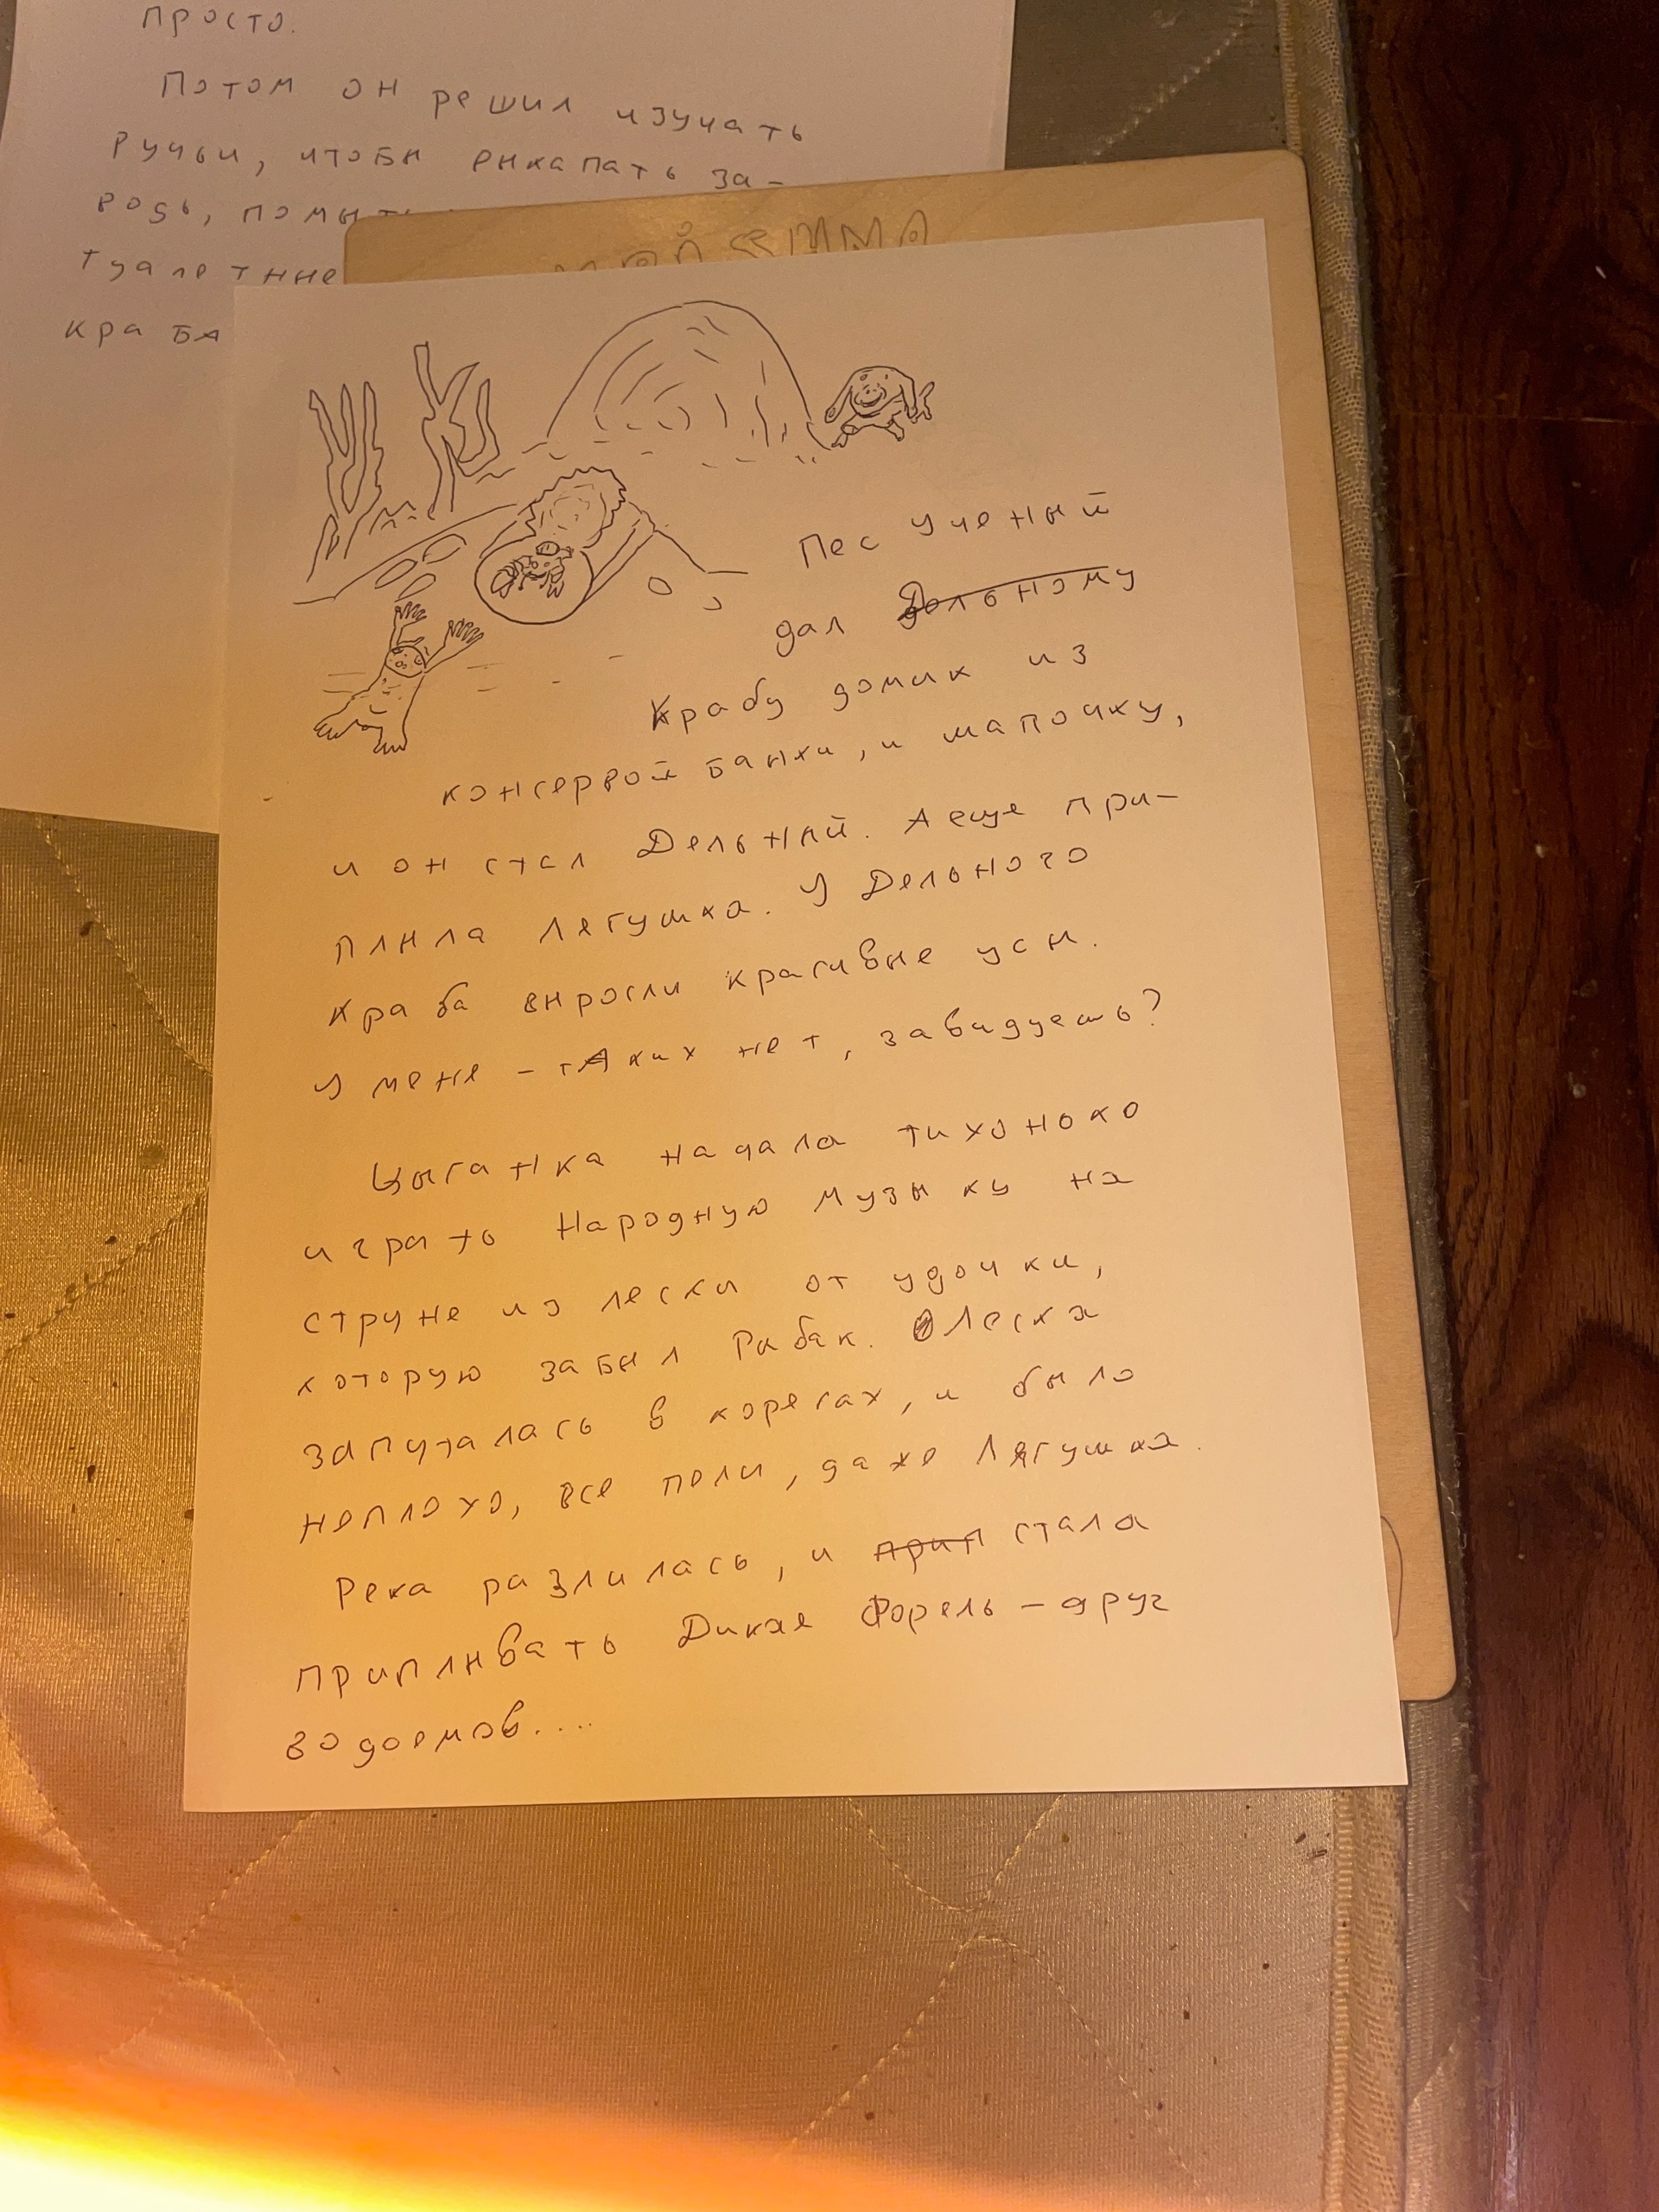 просто.
Потом он решил изучать
ручьи, чтобы выкапать за-
водь, помыть
туалетные
краба
Пес ученый
дал Дольному
Крабу домик из
консервой банки, и шапочку,
и он стал Дельный. А еще при-
плыла лягушка. У Дельного
Краба выросли красивые усы.
У меня – таких нет, завидуешь?
Цыганка начала тихоноко
играть Народную музыку на
струне из лески от удочки,
которую забыл Рабак. Леска
запуталась в корягах, и было
неплохо, все пели, даже Лягушка.
Река разлилась, и прип стала
приплывать Дикая Форель – друг
водоемов....